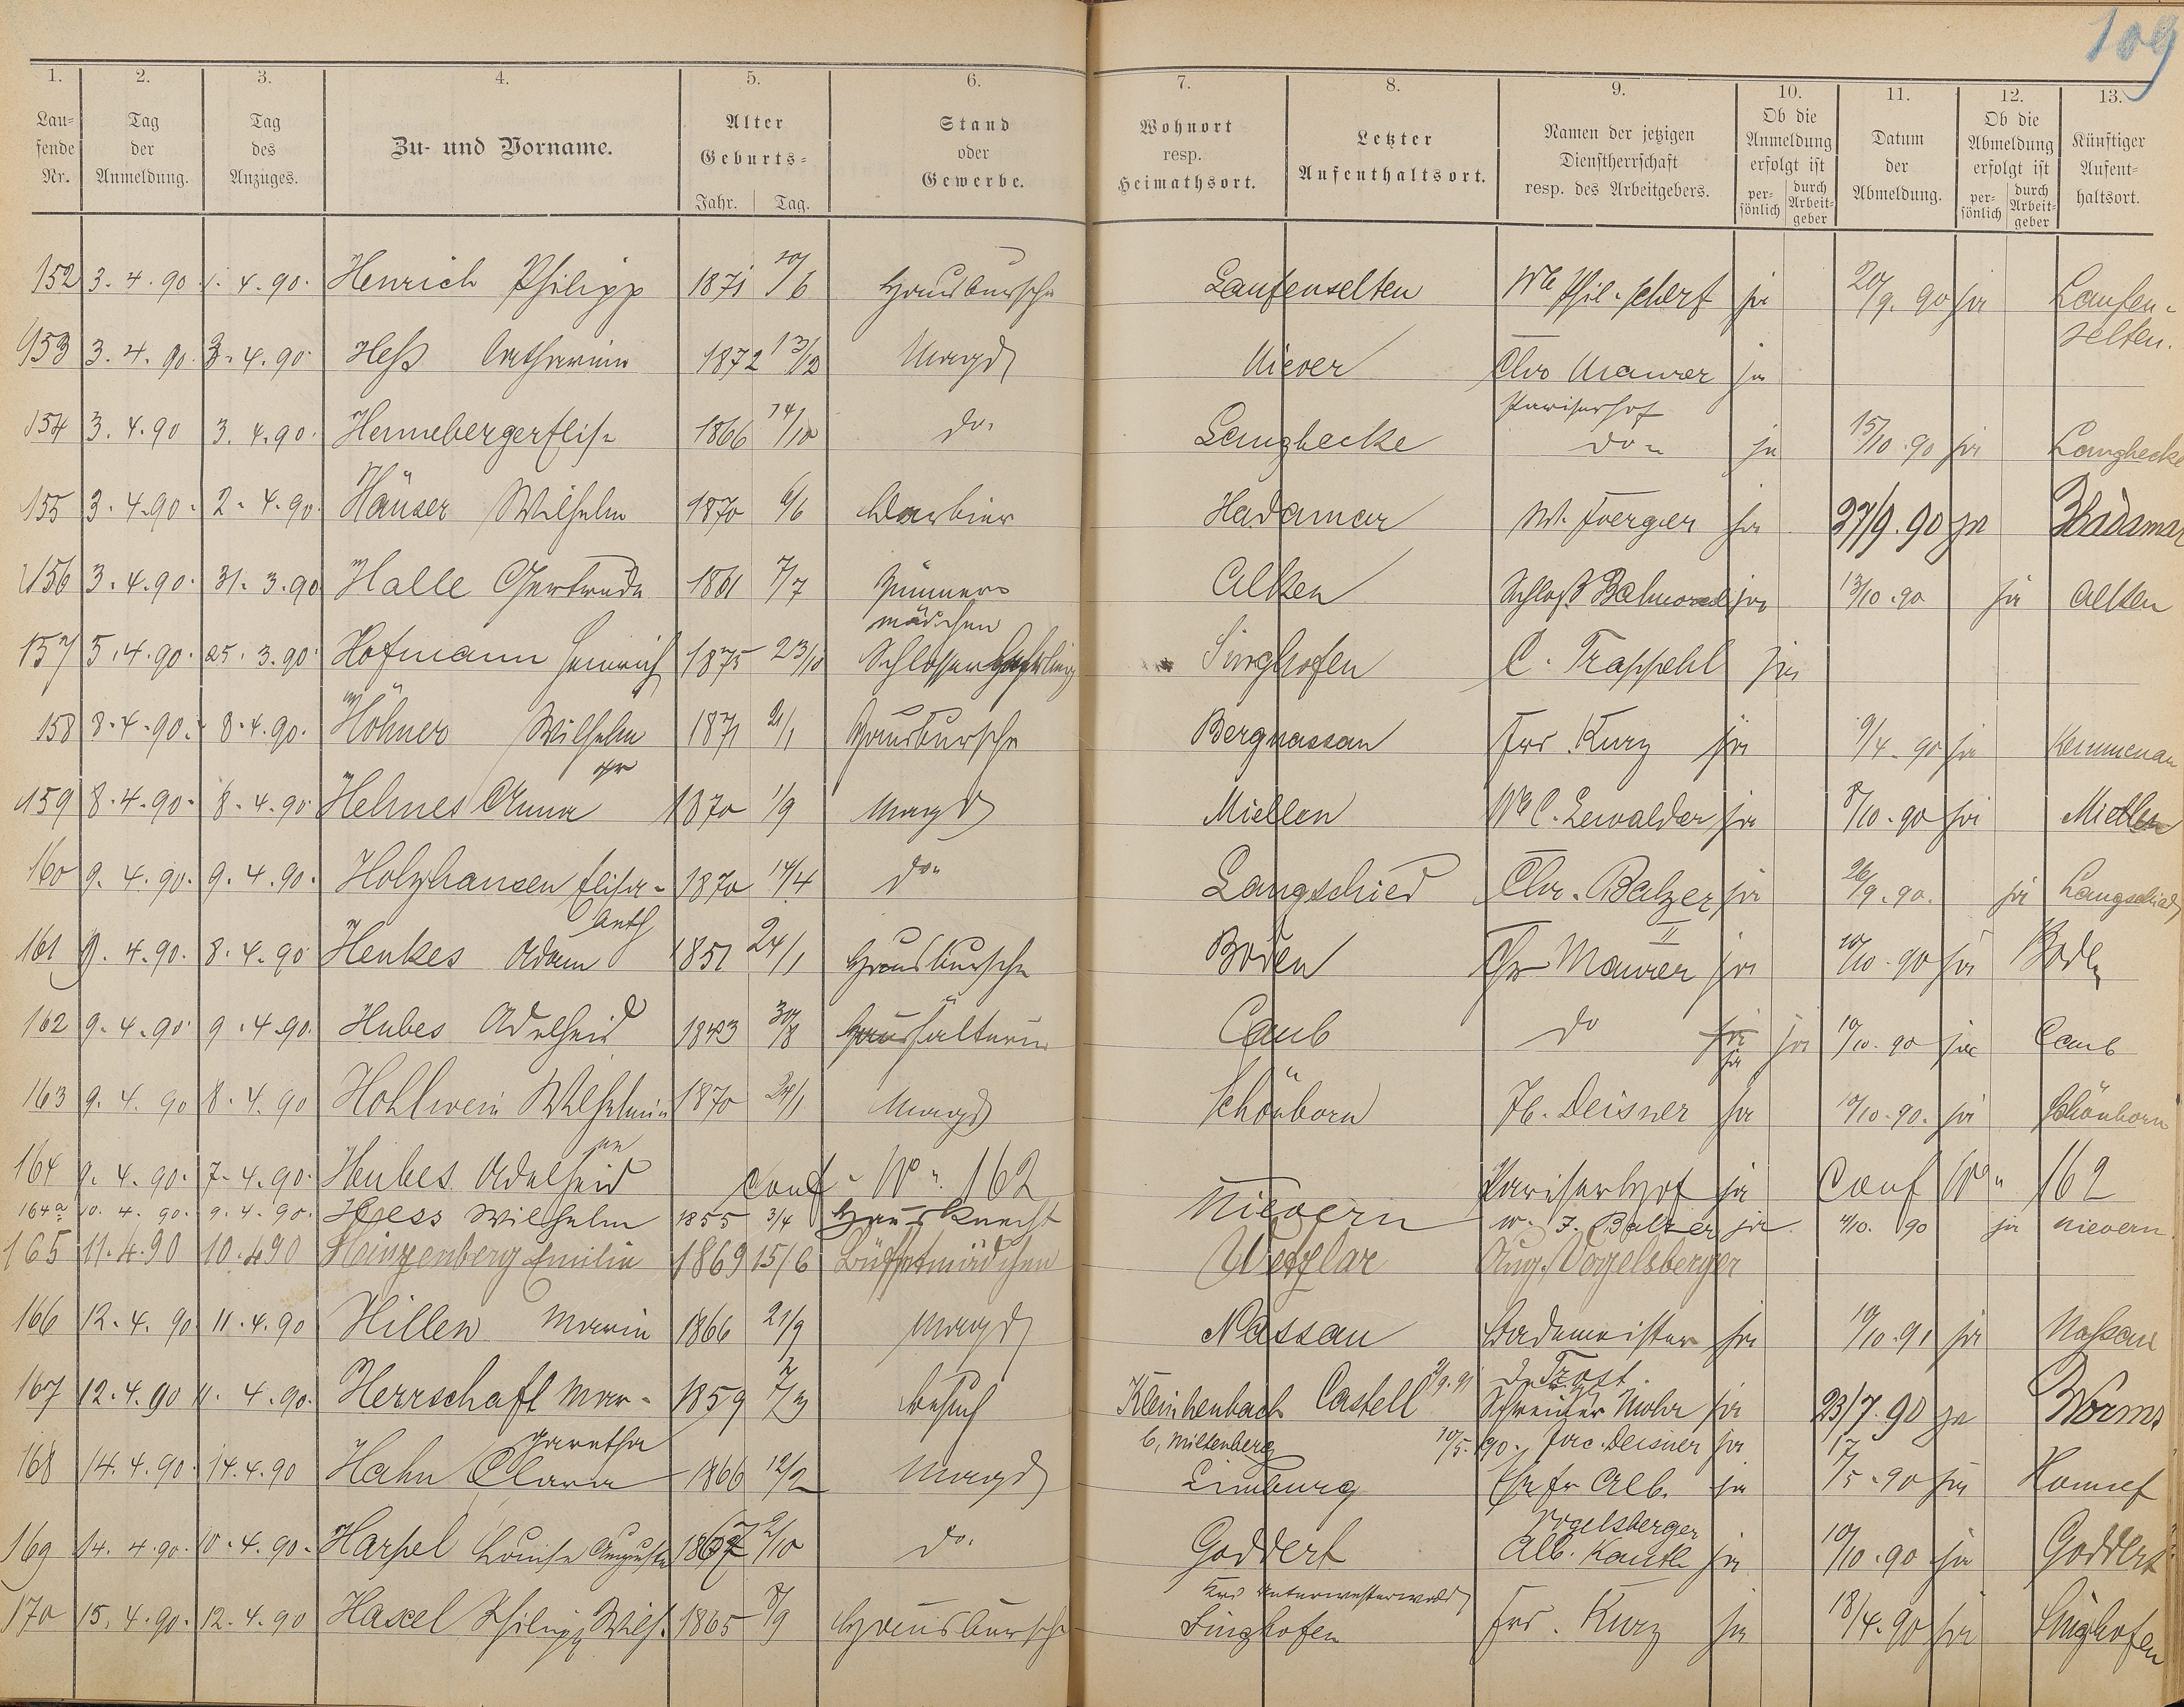 109
1. 2. 3. 4. 5. 6. 7. 8. 9. 10. 11. 12. 13.
Laufende Nr. Tag der Anmeldung. Tag des Anzuges. Zu- und Vorname. Alter Geburts- Jahr. Tag. Stand oder Gewerbe. Wohnort resp. Heimathsort. Letzter Aufenthaltsort. Namen der jetzigen Dienstherrschaft resp. des Arbeitgebers. Ob die Anmeldung erfolgt ist persönlich durch Arbeitgeber Datum der Abmeldung. Ob die Abmeldung erfolgt ist persönlich durch Arbeitgeber Künftiger Aufenthaltsort.
152 3.4.90. 1.4.90. Henrich Philipp 1871 20/6 Hausbursche Laufenselten We Phil. Scherf ja 20/9.90 ja Laufenselten.
153 3.4.90. 3.4.90. Heß Catharina 1872 13/12 Magd Niever Chr Maurer ja
Pariserhof
154 3.4.90 3.4.90. Henneberger Elise 1866 14/10 do. Langhecke do. ja 15/10.90 ja Langhecke
155 3.4.90. 2.4.90. Häuser Wilhelm 1870 6/6 Barbier Hadamar W. Foerger ja 27/9.90 ja Hadamar
156 3.4.90. 31.3.90 Halle Gertrude 1861 7/7 Zimmermädchen Alken Schloß Balmoral ja 13/10.90 ja Alken
157 5.4.90. 25.3.90. Hofmann Heinrich 1875 23/10 Schlosserlehrling Singhofen C. Trappehl ja
158 8.4.90. 8.4.90. Höhner Wilhelm 1871 21/1 Hausbursche Bergnassau Frd. Kurz ja 9/4.90 ja Kemmenau
159 8.4.90. 8.4.90. Helmes Anna 1870 1/9 Magd Miellen We C. Lewalder ja 8/10.90 ja Miellen
160 9.4.90. 9.4.90. Holzhausen Elisabeth 1870 14/4 do. Langschied Chr. Balzer II ja 26/9.90. ja Langschied
161 9.4.90. 8.4.90 Henkes Adam 1851 24/1 Hausbursche Boden Chr Maurer ja 10/10.90 ja Boden
162 9.4.90. 9.4.90. Hubes Adelheid 1843 30/8 Haushälterin Caub do ja ja 10/10.90 ja Caub
163 9.4.90 8.4.90 Hohlwein Wilhelmine 1870 24/1 Magd Schönborn Jb. Deisner ja 10/10.90. ja Schönborn
164 9.4.90. 7.4.90. Heubes Adelheid conf. No. 162 Pariserhof ja Conf No. 162
164a 10.4.90. 9.4.90. Hess Wilhelm 1855 3/4 Hausknecht Nievern W. J. Balzer ja 4/10. 90 ja Nievern.
165 11.4.90 10.4.90 Heinzenberg Emilie 1869 15/6 Büffetmädchen Wetzlar Aug. Vogelsberger
166 12.4.90 11.4.90 Hillen Maria 1866 21/9 Magd Nassau Bademeister ja 10/10.91 ja Nassau
167 12.4.90 11.4.90. Herrschaft Margaretha 1859 7/3 Besuch Kleinheubach Castell Schreiner Mohr ja 23/7.90 ja Worms
b, Miltenberg 10/5.90. Jac. Deisner ja
168 14.4.90. 14.4.90 Hahn Clara 1866 12/2 Magd Limburg Ehefr Alb. Vogelsberger ja 17/5.90 ja Honnef
169 14.4.90. 10.4.90. Harpel Louise Auguste 1867 2/10 do. Goddert Alb. Kauth ja 10/10.90 ja Goddert
Krs Unterwesterwald
170 15.4.90. 12.4.90 Haxel Philipp Wilh. 1865 8/9 Hausbursche Singhofen Frd. Kurz ja 18/4.90 ja Singhofen